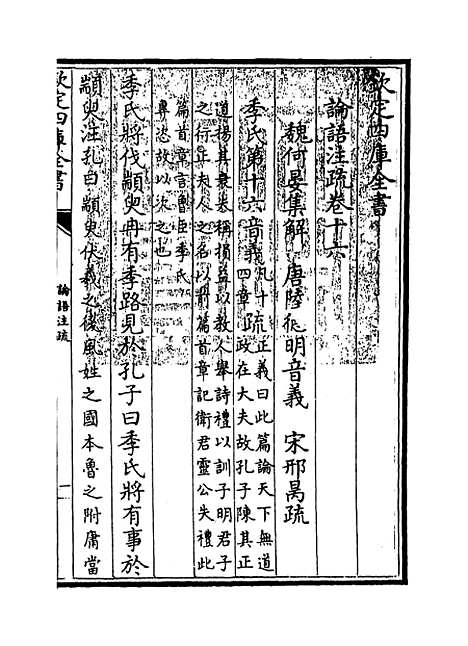 欽定四庫全書
論語注疏卷十六
魏何晏集解 唐陸德明音義 宋邢昺疏
季氏第十六 音義 凡十四章 疏 正義曰此篇論天下無道政在大夫故孔子陳其正
道揚其衰失稱損益以教人舉詩禮以訓子明君子
之行正夫人之名以前篇首章記衛君靈公失禮此
篇首章言魯臣季氏
專恣故以次之也
季氏將伐顓臾冉有季路見於孔子曰季氏將有事於
顓臾注孔曰顓臾伏羲之後風姓之國本魯之附庸當
欽定四庫全書
論語注疏
一